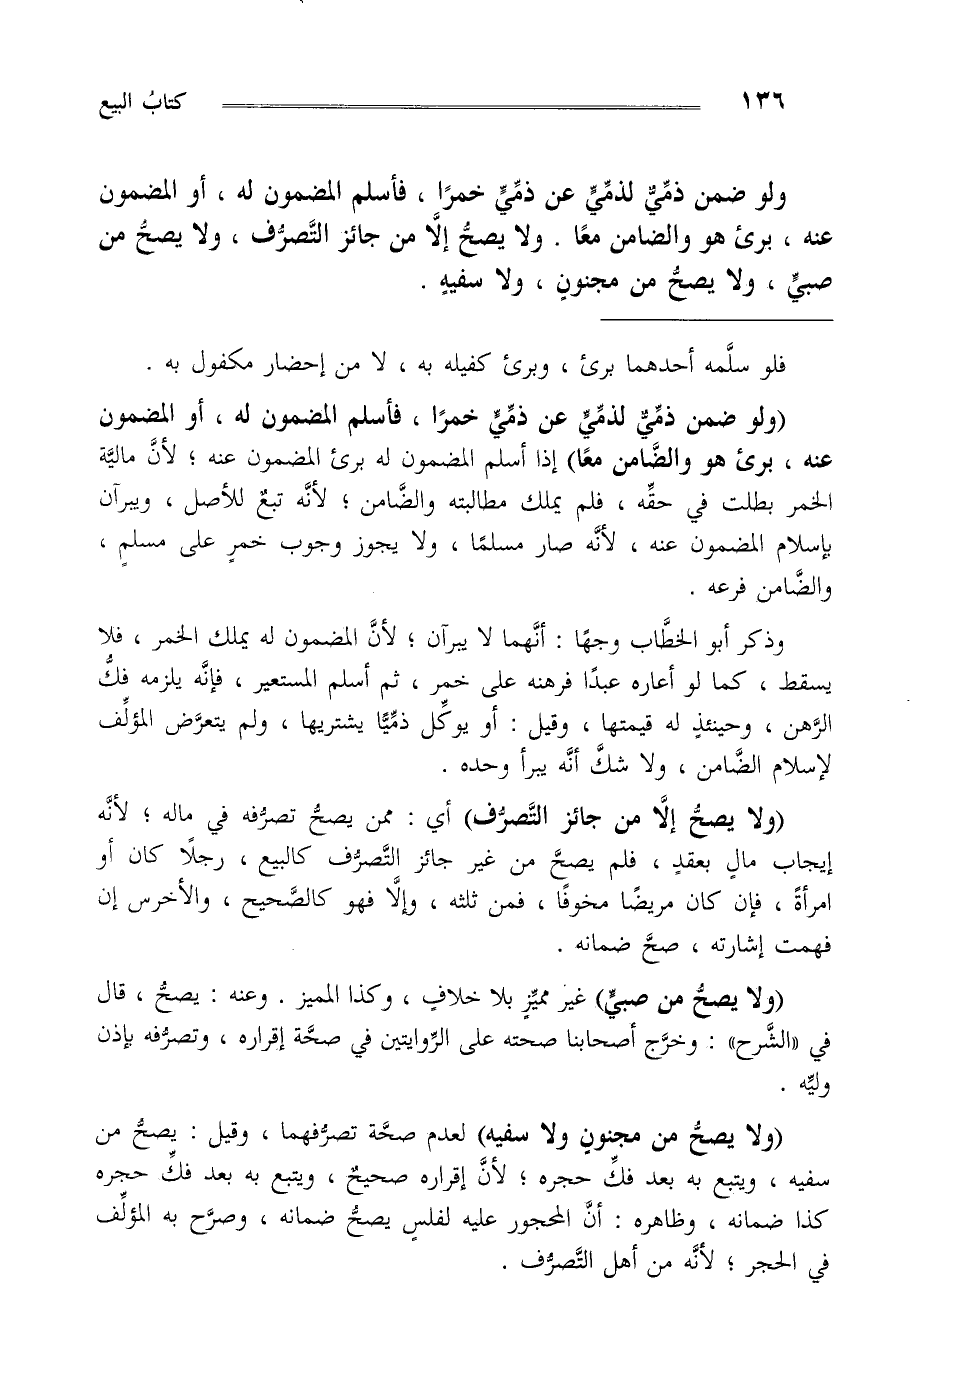 ١٣٦ كتابُ البيع
ولو ضمن ذمِّيٌّ لذمِّيٍّ عن ذمِّيٍّ خمرًا ، فأسلم المضمون له ، أو المضمون
عنه ، برئ هو والضامن معًا . ولا يصحُّ إلَّا من جائز التَّصرُّف ، ولا يصحُّ من
صبيٍّ ، ولا يصحُّ من مجنونٍ ، ولا سفيهٍ .
فلو سلَّمه أحدهما برئ ، وبرئ كفيله به ، لا من إحضار مكفول به .
(ولو ضمن ذمِّيٌّ لذمِّيٍّ عن ذمِّيٍّ خمرًا ، فأسلم المضمون له ، أو المضمون
عنه ، برئ هو والضَّامن معًا) إذا أسلم المضمون له برئ المضمون عنه ؛ لأنَّ ماليَّة
الخمر بطلت في حقِّه ، فلم يملك مطالبته والضَّامن ؛ لأنَّه تبعٌ للأصل ، ويبرآن
بإسلام المضمون عنه ، لأنَّه صار مسلمًا ، ولا يجوز وجوب خمرٍ على مسلمٍ ،
والضَّامن فرعه .
وذكر أبو الخطَّاب وجهًا : أنَّهما لا يبرآن ؛ لأنَّ المضمون له يملك الخمر ، فلا
يسقط ، كما لو أعاره عبدًا فرهنه على خمر ، ثم أسلم المستعير ، فإنَّه يلزمه فكُّ
الرَّهن ، وحينئذٍ له قيمتها ، وقيل : أو يوكِّل ذمِّيًّا يشتريها ، ولم يتعرَّض المؤلِّف
لإسلام الضَّامن ، ولا شكَّ أنَّه يبرأ وحده .
(ولا يصحُّ إلَّا من جائز التَّصرُّف) أي : ممن يصحُّ تصرُّفه في ماله ؛ لأنَّه
إيجاب مالٍ بعقدٍ ، فلم يصحَّ من غير جائز التَّصرُّف كالبيع ، رجلًا كان أو
امرأةً ، فإن كان مريضًا مخوفًا ، فمن ثلثه ، وإلَّا فهو كالصَّحيح ، والأخرس إن
فهمت إشارته ، صحَّ ضمانه .
(ولا يصحُّ من صبيٍّ) غير مميَّزٍ بلا خلافٍ ، وكذا المميز . وعنه : يصحُّ ، قال
في «الشَّرح» : وخرَّج أصحابنا صحته على الرِّوايتين في صحَّة إقراره ، وتصرُّفه بإذن
وليِّه .
(ولا يصحُّ من مجنونٍ ولا سفيه) لعدم صحَّة تصرُّفهما ، وقيل : يصحُّ من
سفيه ، ويتبع به بعد فكِّ حجره ؛ لأنَّ إقراره صحيحٌ ، ويتبع به بعد فكِّ حجره
كذا ضمانه ، وظاهره : أنَّ المحجور عليه لفلسٍ يصحُّ ضمانه ، وصرَّح به المؤلِّف
في الحجر ؛ لأنَّه من أهل التَّصرُّف .